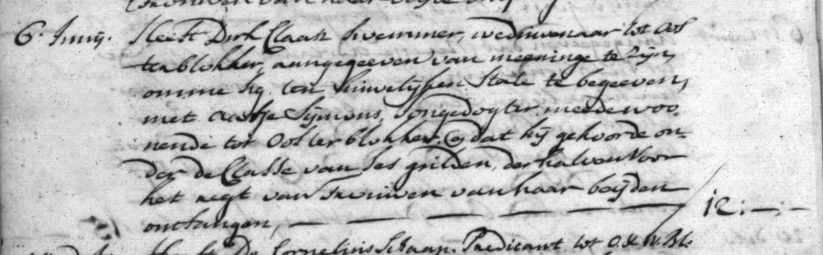 6 Junij. Heeft Dirk Claasz Swemmer, weduwenaar tot Oos
terblokker, aangegeeven van meeninge te zijn,
omme sig ten Huwelijken State te begeeven,
met Aafje Sijmons, jongedogter, meede woo„
nende tot Oosterblokker, en dat hij gehoorde on„
der de Classe van ses gulden, derhalven voor
het regt van trouwen van haar beijden
ontfangen, — — — — — — — 12:—:—
Heeft Ds. Cornelius Schaap, Predicant tot O. & W. Bl.